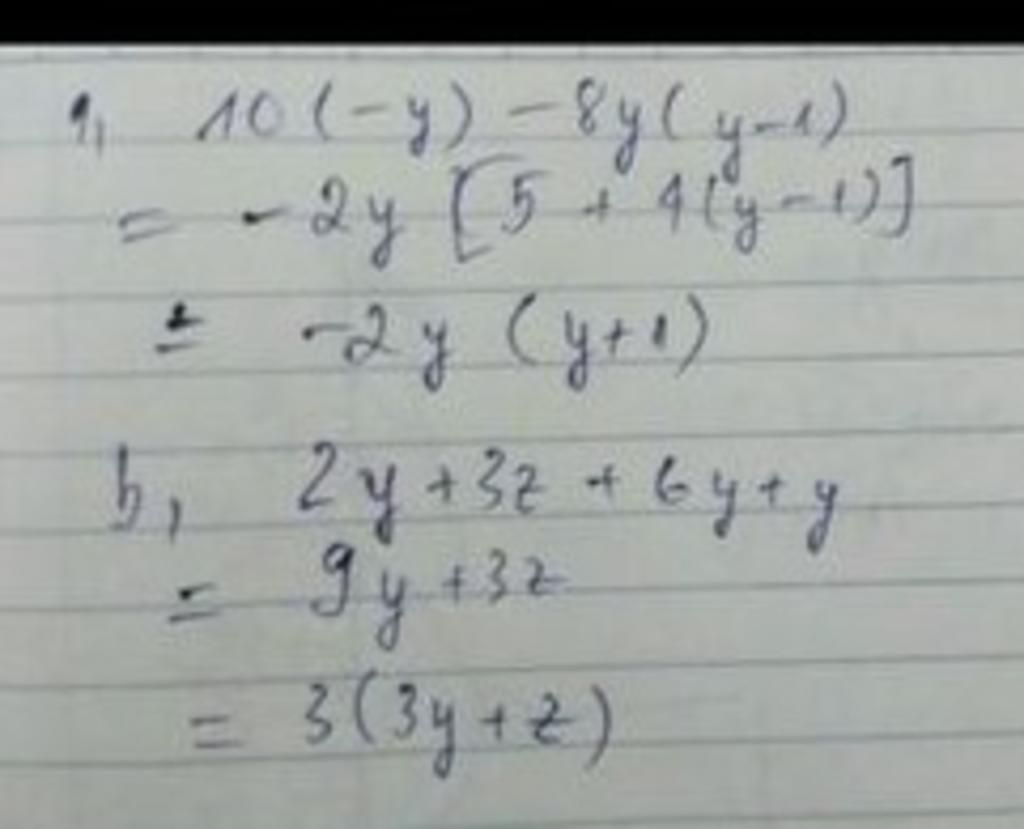 1, 10(-y) - 8y(y-1)
= -2y [5 + 4(y-1)]
= -2y (y+1)
b, 2y + 3z + 6y + y
= 9y + 3z
= 3(3y + z)